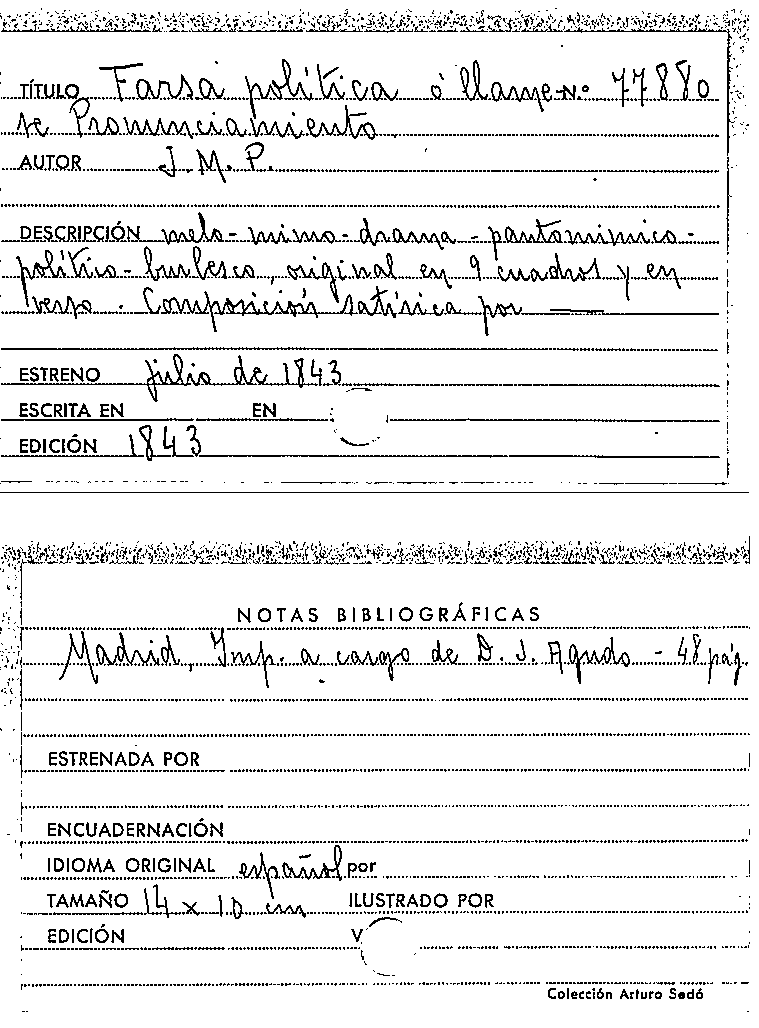 TÍTULO Farsa política ó llame N.º 77880
se Pronunciamiento
AUTOR J. M. P.
DESCRIPCIÓN melo-mimo-drama-pantomimico-
político-burlesco, original en 9 cuadros y en
verso. Composición satírica por ——
ESTRENO julio de 1843
ESCRITA EN EN
EDICIÓN 1843
NOTAS BIBLIOGRÁFICAS
Madrid, Imp. a cargo de D. J. Agudo - 48 pág.
ESTRENADA POR
ENCUADERNACIÓN
IDIOMA ORIGINAL español por
TAMAÑO 14 x 10 cm ILUSTRADO POR
EDICIÓN V
Colección Arturo Sedó